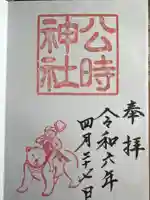 奉拝
公時神社
令和六年
四月二十七日